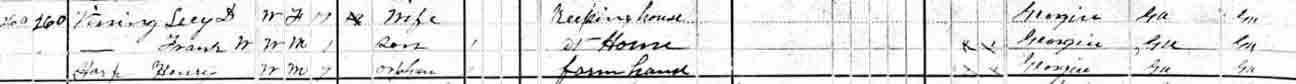 260 260 Vining Lucy D W F Wife Keeping house Georgia Ga Ga
— Frank W W M 1 Son 1 At Home Georgia Ga Ga
Harp W M 7 Orphan farm hand Georgia Ga Ga